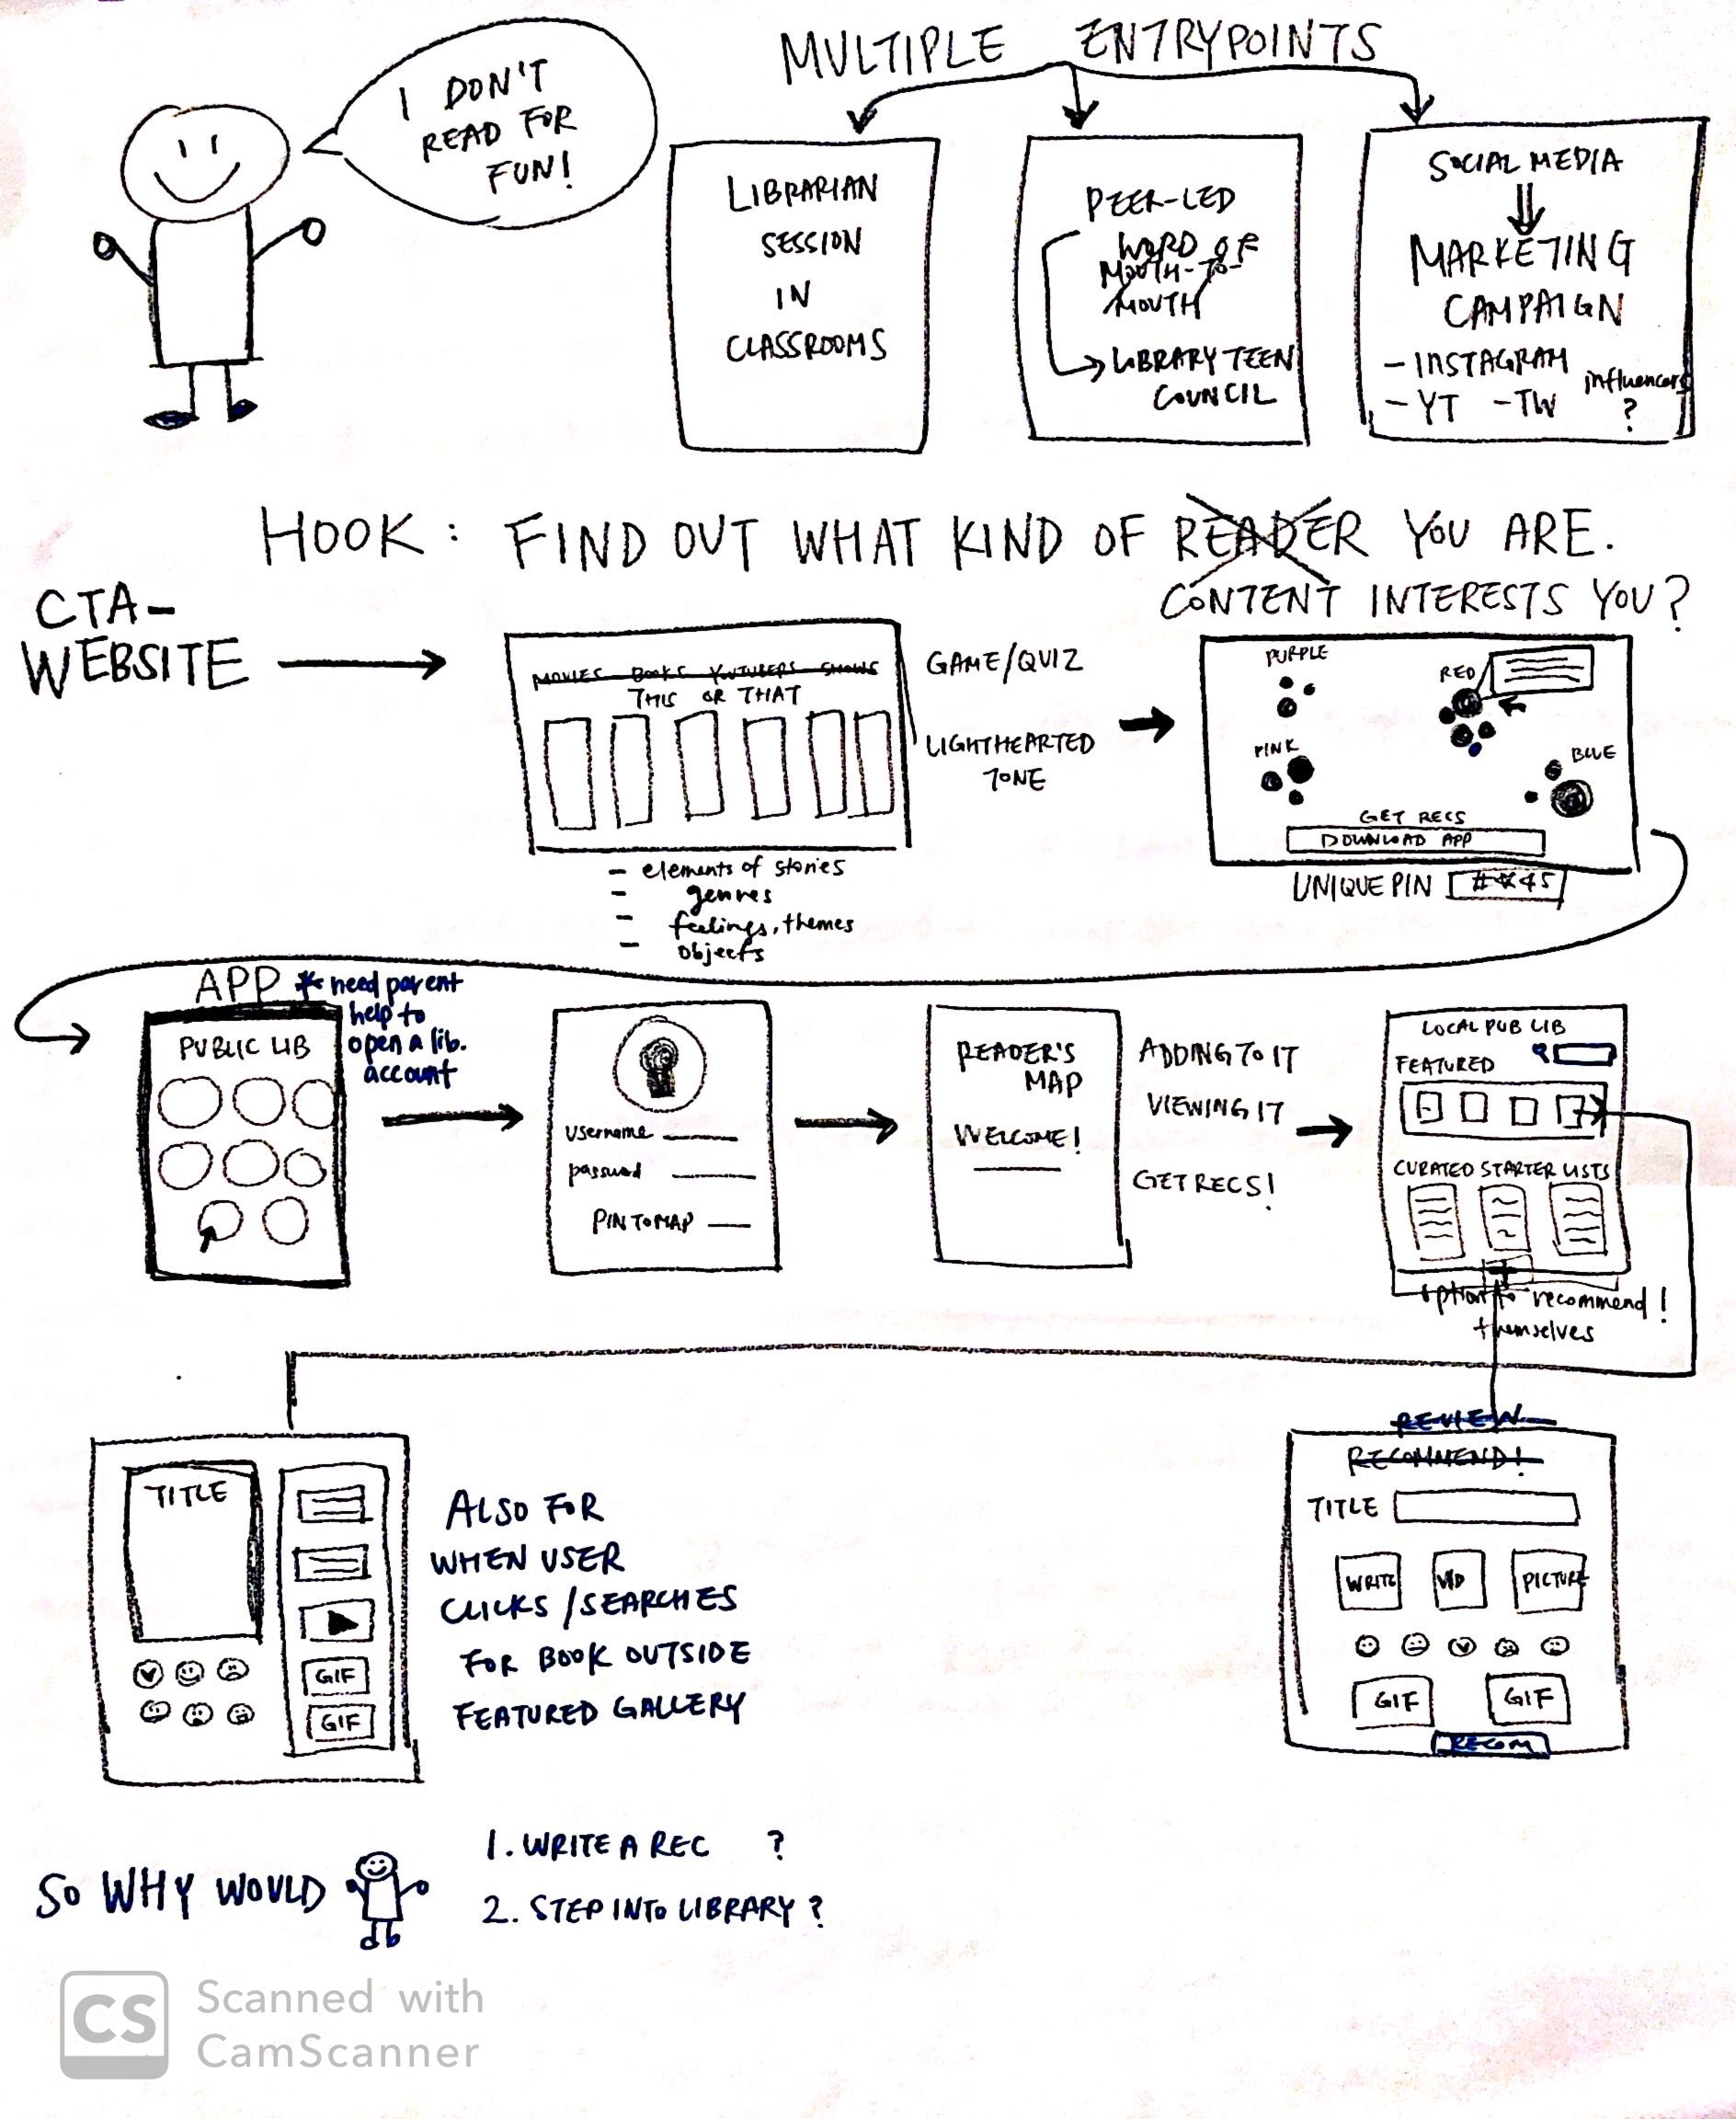 I DON'T
READ FOR
FUN!
MULTIPLE ENTRYPOINTS
LIBRARIAN
SESSION
IN
CLASSROOMS
PEER-LED
WORD OF
MOUTH-TO-
MOUTH
LIBRARY TEEN
COUNCIL
SOCIAL MEDIA
MARKETING
CAMPAIGN
- INSTAGRAM
- YT - TW
influencers
?
HOOK: FIND OUT WHAT KIND OF READER YOU ARE.
CONTENT INTERESTS YOU?
CTA-
WEBSITE
MOVIES BOOKS YOUTUBERS SHOWS
THIS OR THAT
GAME/QUIZ
LIGHTHEARTED
TONE
- elements of stories
- genres
- feelings, themes
- objects
PURPLE
RED
PINK
BLUE
GET RECS
DOWNLOAD APP
UNIQUE PIN
APP * need parent
help to
open a lib.
account
PUBLIC LIB
username
password
PIN TO MAP
READER'S
MAP
WELCOME!
ADDING TO IT
VIEWING IT
GET RECS!
LOCAL PUB LIB
FEATURED
CURATED STARTER LISTS
option to recommend!
themselves
TITLE
GIF
GIF
ALSO FOR
WHEN USER
CLICKS/SEARCHES
FOR BOOK OUTSIDE
FEATURED GALLERY
REVIEW
RECOMMEND!
TITLE
WRITE VID PICTURE
GIF GIF
RECOM
SO WHY WOULD
1. WRITE A REC ?
2. STEP INTO LIBRARY?
CS Scanned with
CamScanner